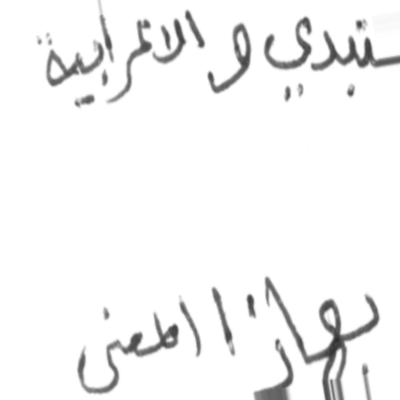 ستبدي والاعرابية
بهاذا المعنى